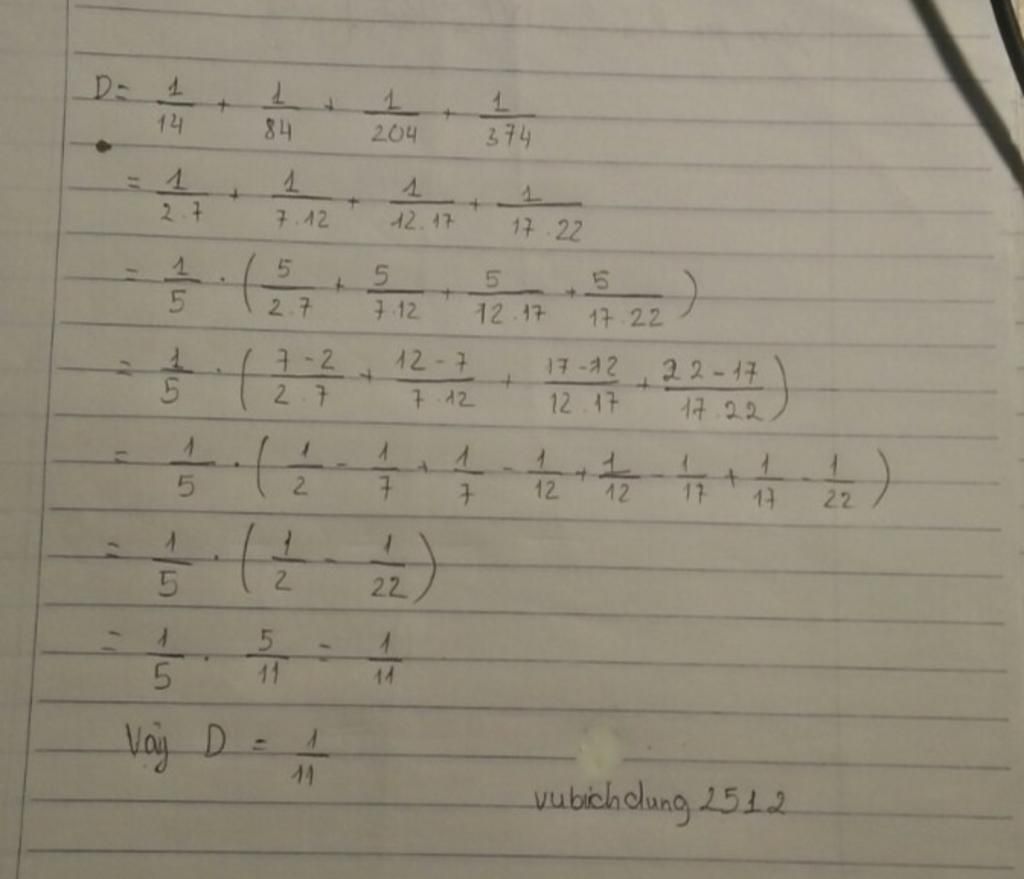 D = 1/14 + 1/84 + 1/204 + 1/374
= 1/2.7 + 1/7.12 + 1/12.17 + 1/17.22
= 1/5 . (5/2.7 + 5/7.12 + 5/12.17 + 5/17.22)
= 1/5 . (7-2/2.7 + 12-7/7.12 + 17-12/12.17 + 22-17/17.22)
= 1/5 . (1/2 - 1/7 + 1/7 - 1/12 + 1/12 - 1/17 + 1/17 - 1/22)
= 1/5 . (1/2 - 1/22)
= 1/5 . 5/11 = 1/11
Vậy D = 1/11
vubichdung 2512